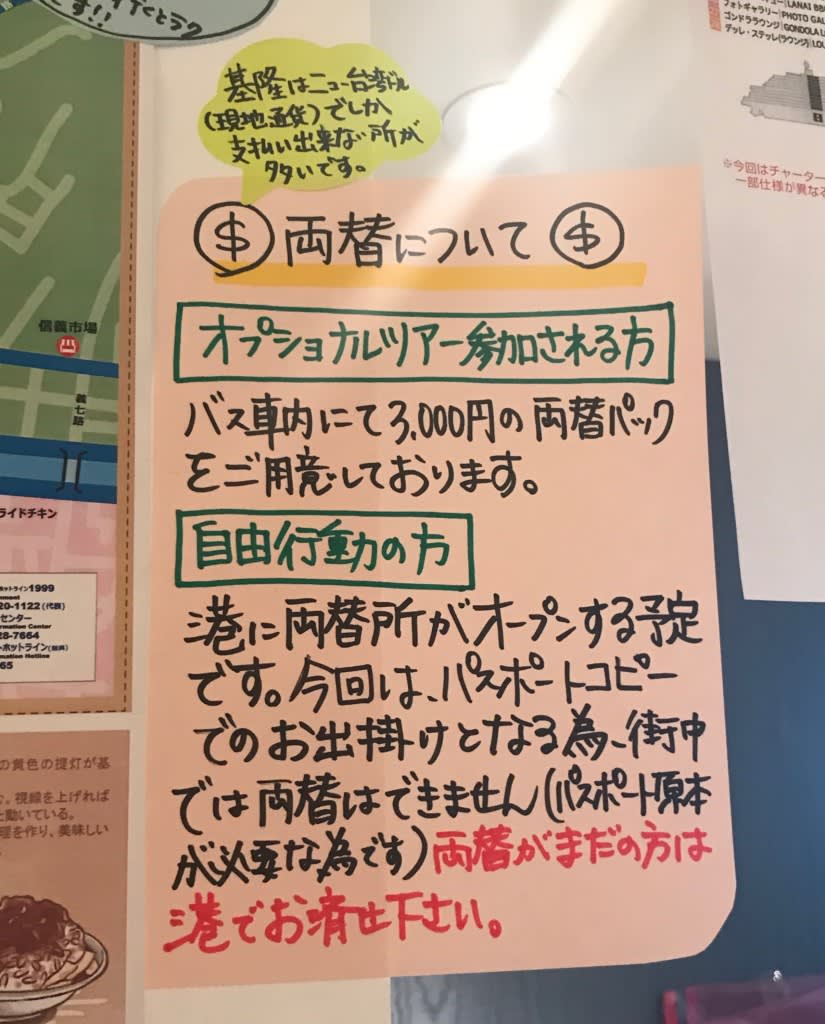 です!!
基隆はニュー台湾ドル
(現地通貨)でしか
支払い出来ない所が
多いです。
$ 両替について $
オプショナルツアー参加される方
バス車内にて3,000円の両替パック
をご用意しております。
自由行動の方
港に両替所がオープンする予定
です。今回は、パスポートコピー
でのお出掛けとなる為、街中
では両替はできません(パスポート原本
が必要な為です)両替がまだの方は
港でお済せ下さい。
信義市場
義七路
ライドチキン
ホットライン1999
20-1122(代表)
センター
rmation Center
28-7664
ホットライン
mation Hotline
65
の黄色の提灯が基
。視線を上げれば
と動いている。
理を作り、美味しい
LANAI BB
フォトギャラリー|PHOTO GAL
ゴンドララウンジ|GONDOLA L
デッレ・ステッレ(ラウンジ)|LOU
※今回はチャーター
一部仕様が異なる